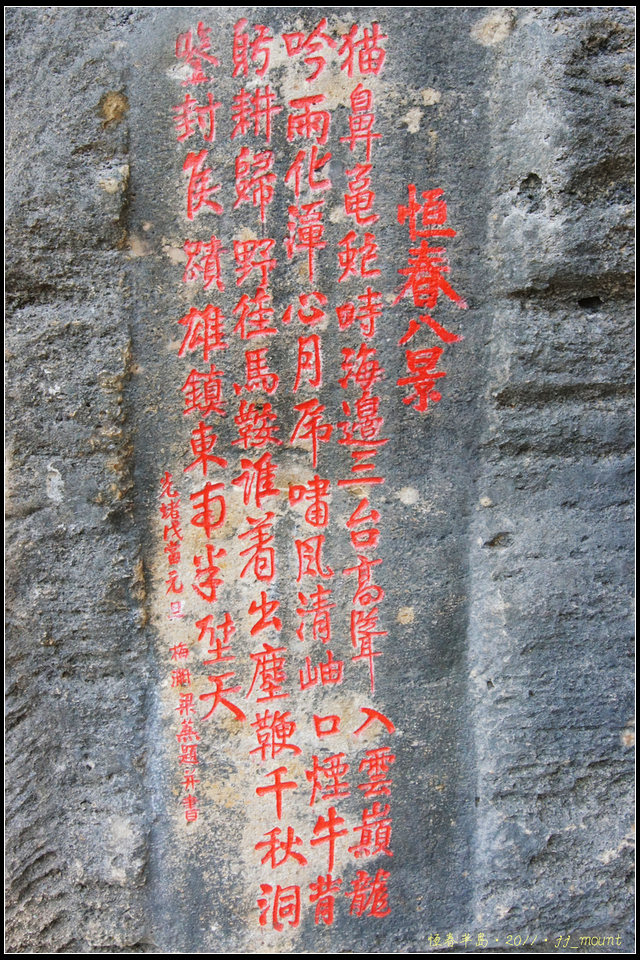 恆春八景
猫鼻黿鮀時海邊三台高聳入雲巔龍
吟雨化潭心月虎嘯风清岫口煙牛背
躬耕歸野徑馬鞍谁着出塵鞭千秋洞
鑒封侯蹟雄鎮東南半壁天
光緒戊寅元旦 梅 梁燕題并書
恆春半島·2011·jj_mount